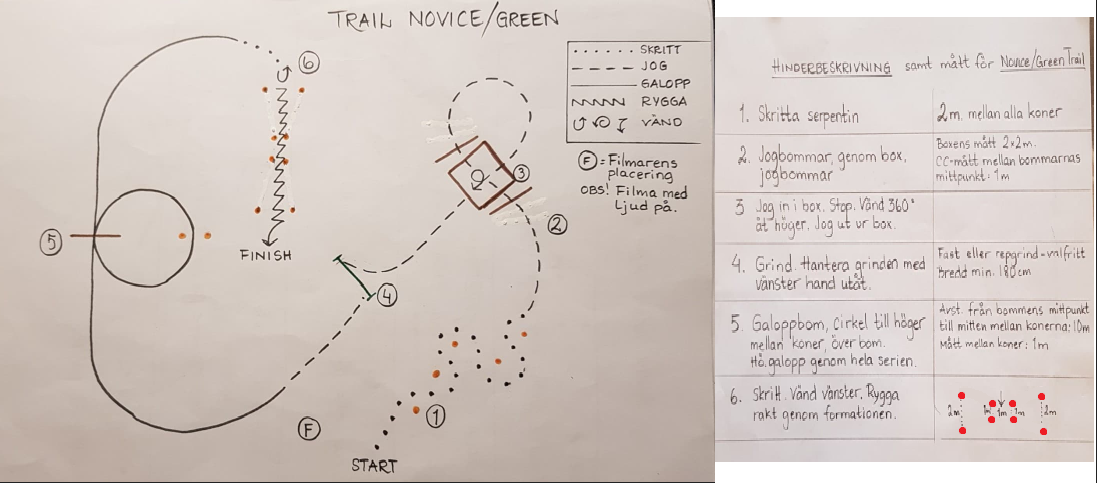 TRAIL NOVICE/GREEN
SKRITT
JOG
GALOPP
RYGGA
VÄND
F = Filmarens
placering
OBS! Filma med
Ljud på.
6
3
2
5
FINISH
4
1
F
START
HINDERBESKRIVNING samt mått för Novice/Green Trail
1. Skritta serpentin
2m. mellan alla koner
2. Jogbommar, genom box,
jogbommar
Boxens mått 2x2m.
CC-mått mellan bommarnas
mittpunkt: 1m
3 Jog in i box. Stop. Vänd 360°
åt höger. Jog ut ur box.
4. Grind. Hantera grinden med
vänster hand utåt.
Fast eller repgrind-valfritt
Bredd min. 180cm
5. Galoppbom, cirkel till höger
mellan koner, över bom.
Hö.galopp genom hela serien.
Avst. från bommens mittpunkt
till mitten mellan konerna: 10m
Mått mellan koner: 1m
6. Skritt. Vänd vänster. Rygga
rakt genom formationen.
2m 1m 1m 2m